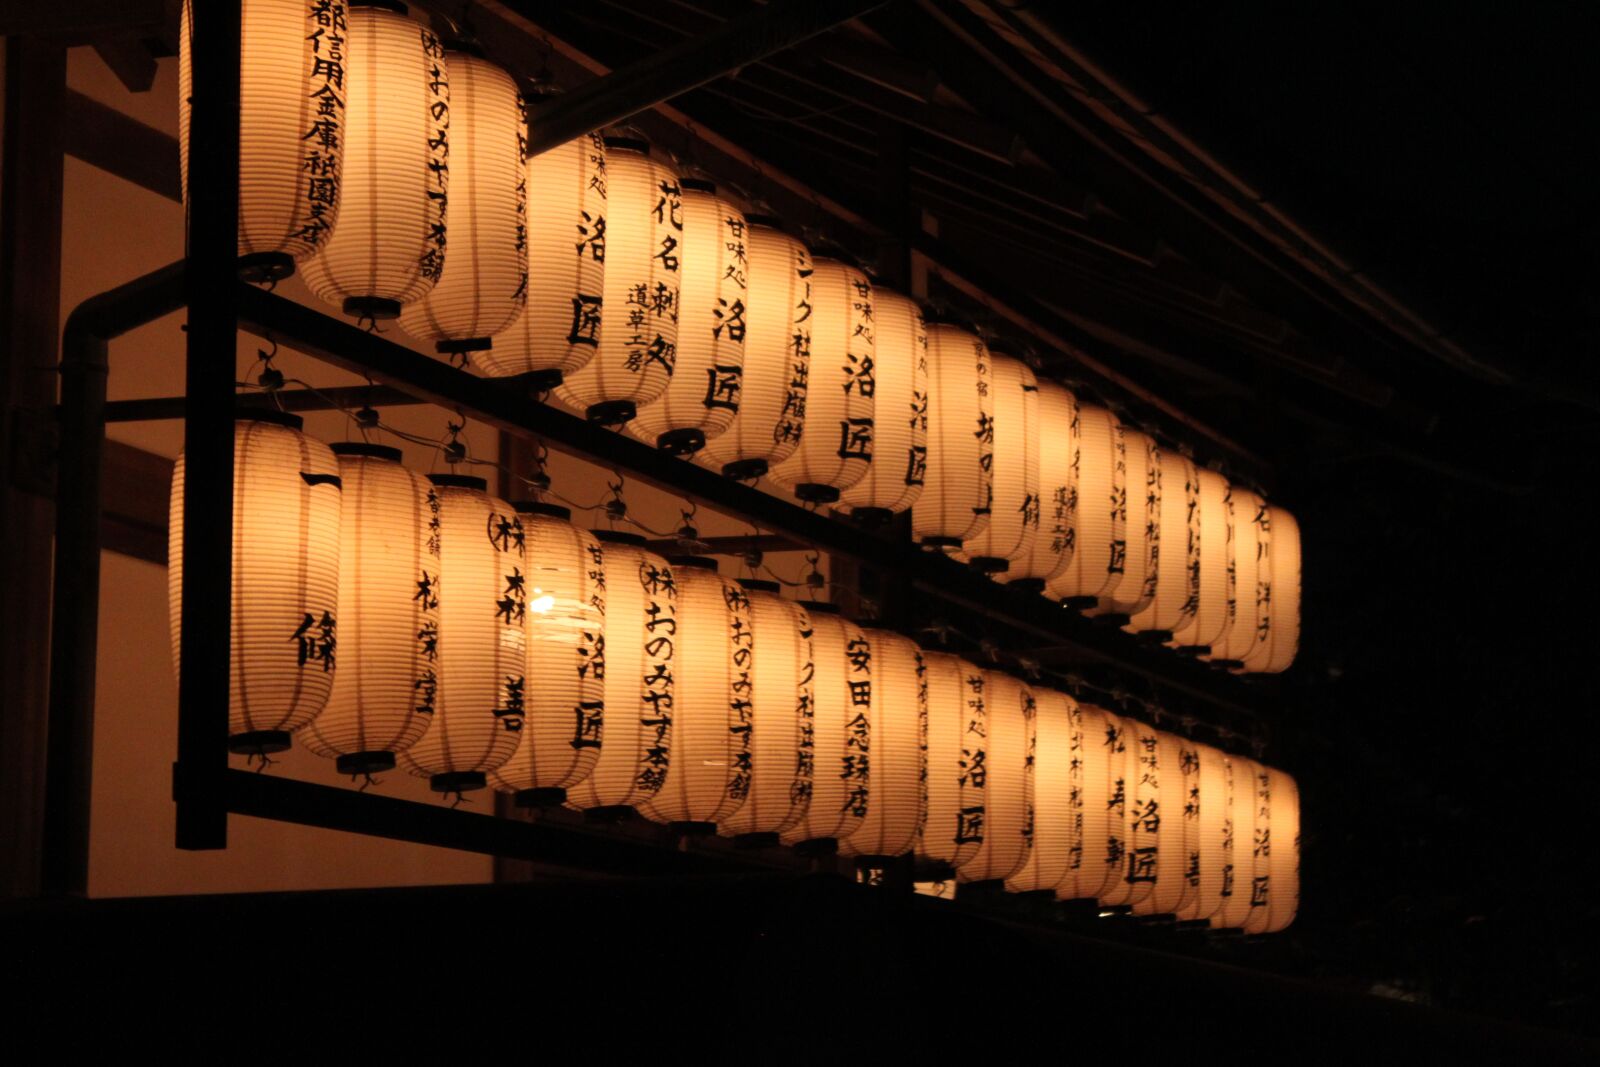 都信用金庫祇園支店
(株)おのみやす本舗
甘味処 洛匠
花名刺処 道草工房
甘味処 洛匠
シーク社出版(株)
甘味処 洛匠
甘味処 洛匠
京の宿 坂の上
一脩
花名刺処 道草工房
甘味処 洛匠
石川洋子
一脩
香老舗 松栄堂
(株)森善
甘味処 洛匠
(株)おのみやす本舗
(株)おのみやす本舗
シーク社出版(株)
安田念珠店
甘味処 洛匠
松寿軒
甘味処 洛匠
(株)森善
甘味処 洛匠